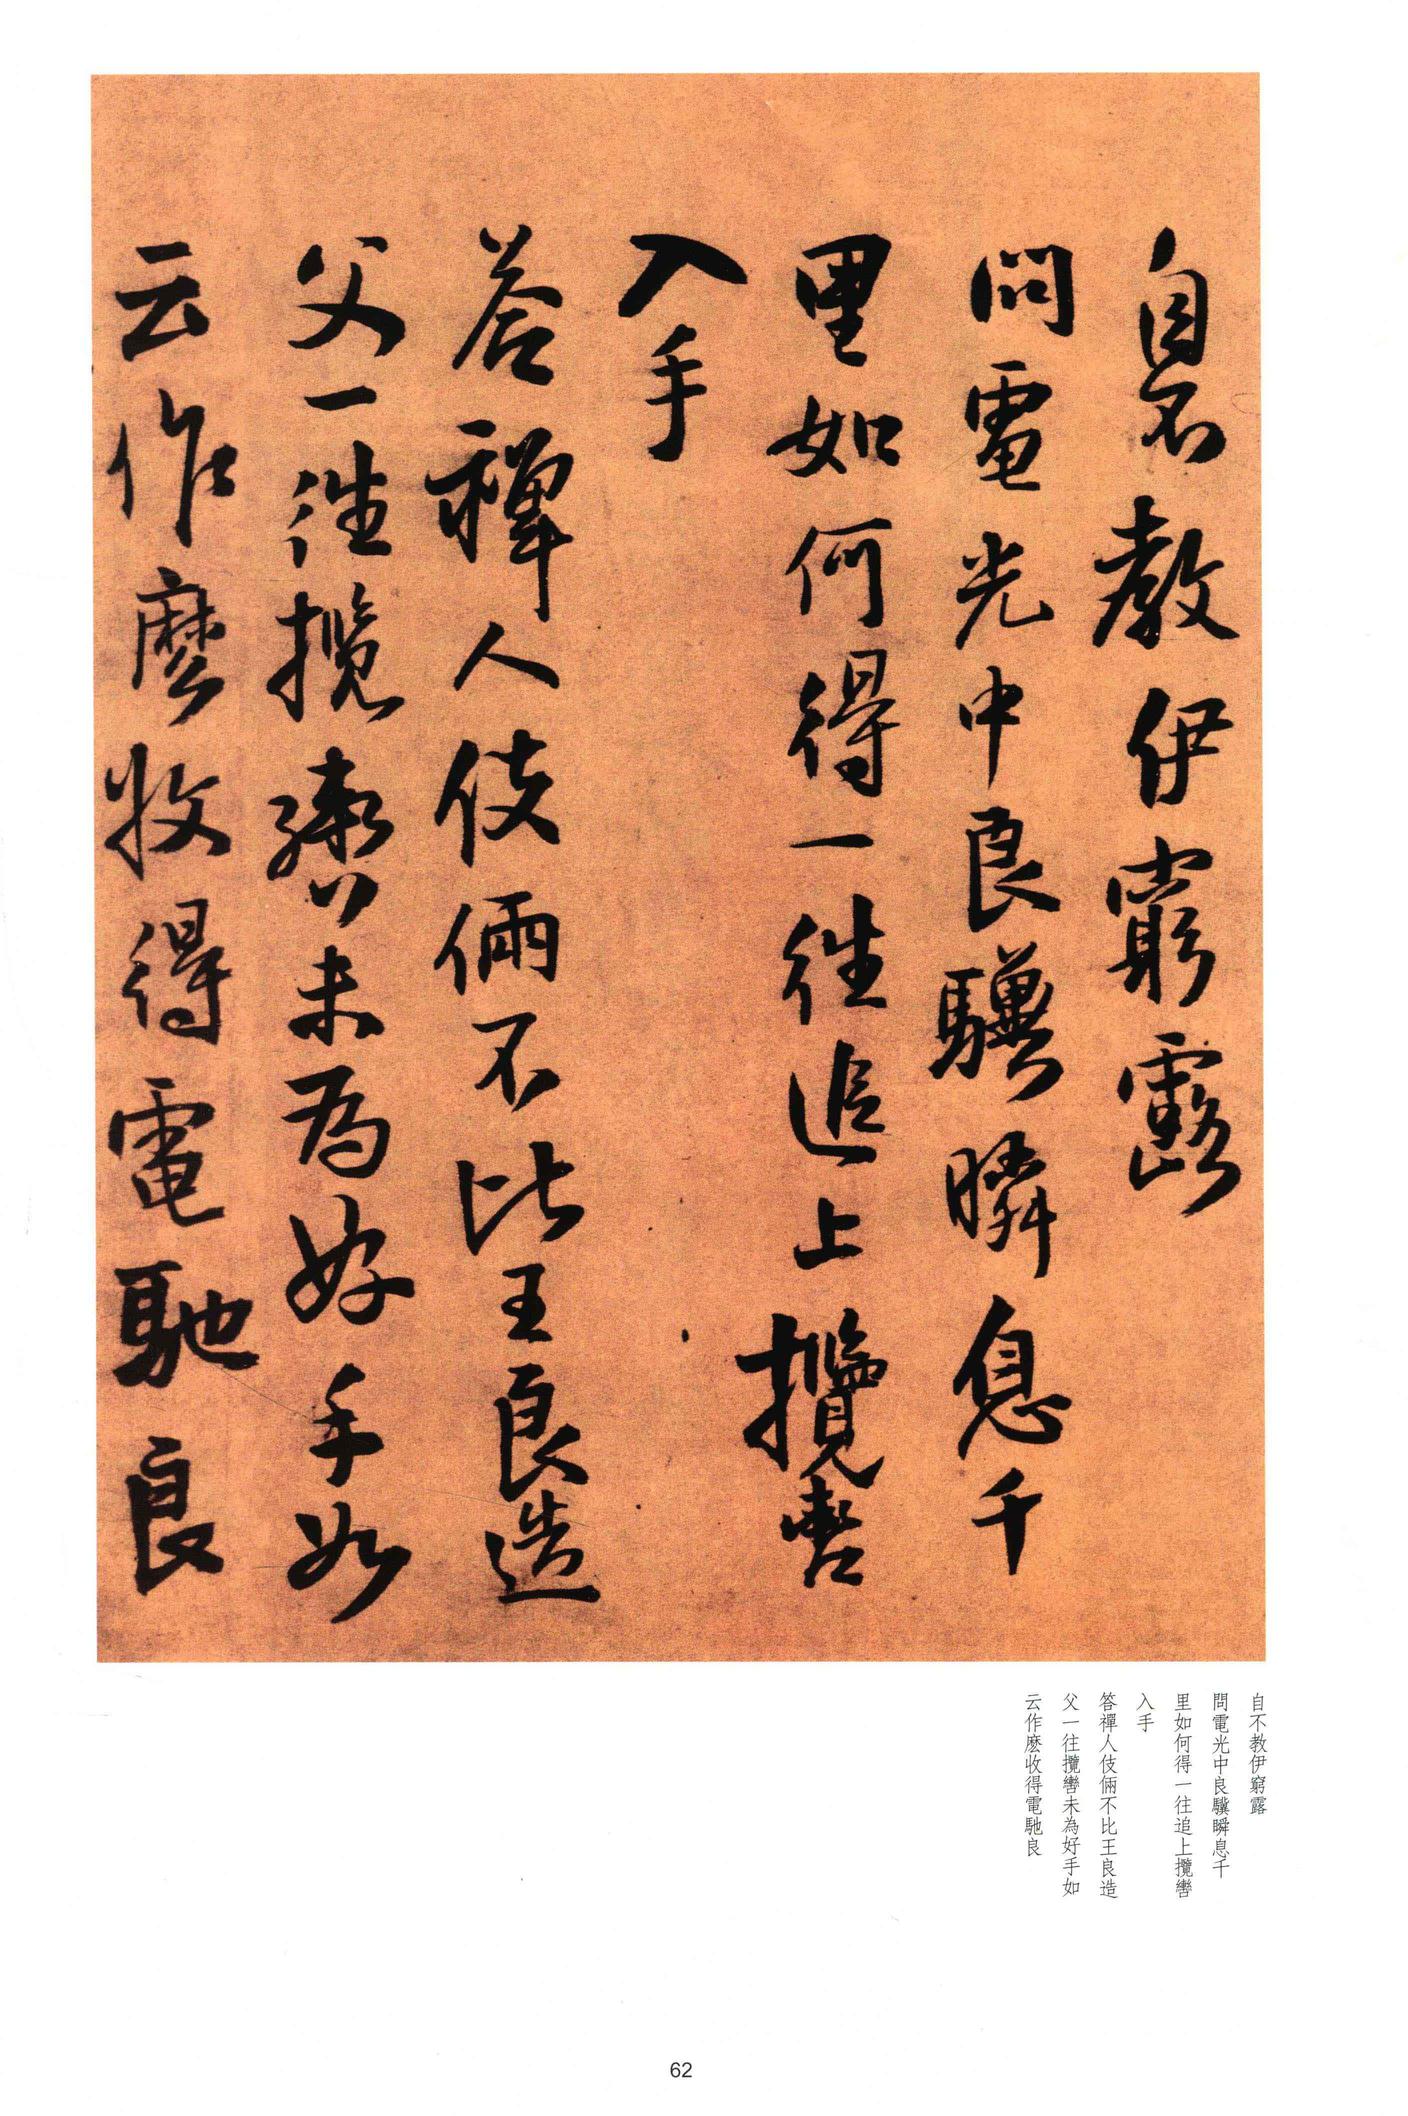 自不教伊窮露
問電光中良驥瞬息千
里如何得一往追上攬轡
入手
答禪人伎倆不比王良造
父一往攬轡未為好手如
云作麼收得電馳良
自不教伊窮露
問電光中良驥瞬息千
里如何得一往追上攬轡
入手
答禪人伎倆不比王良造
父一往攬轡未為好手如
云作麼收得電馳良
62